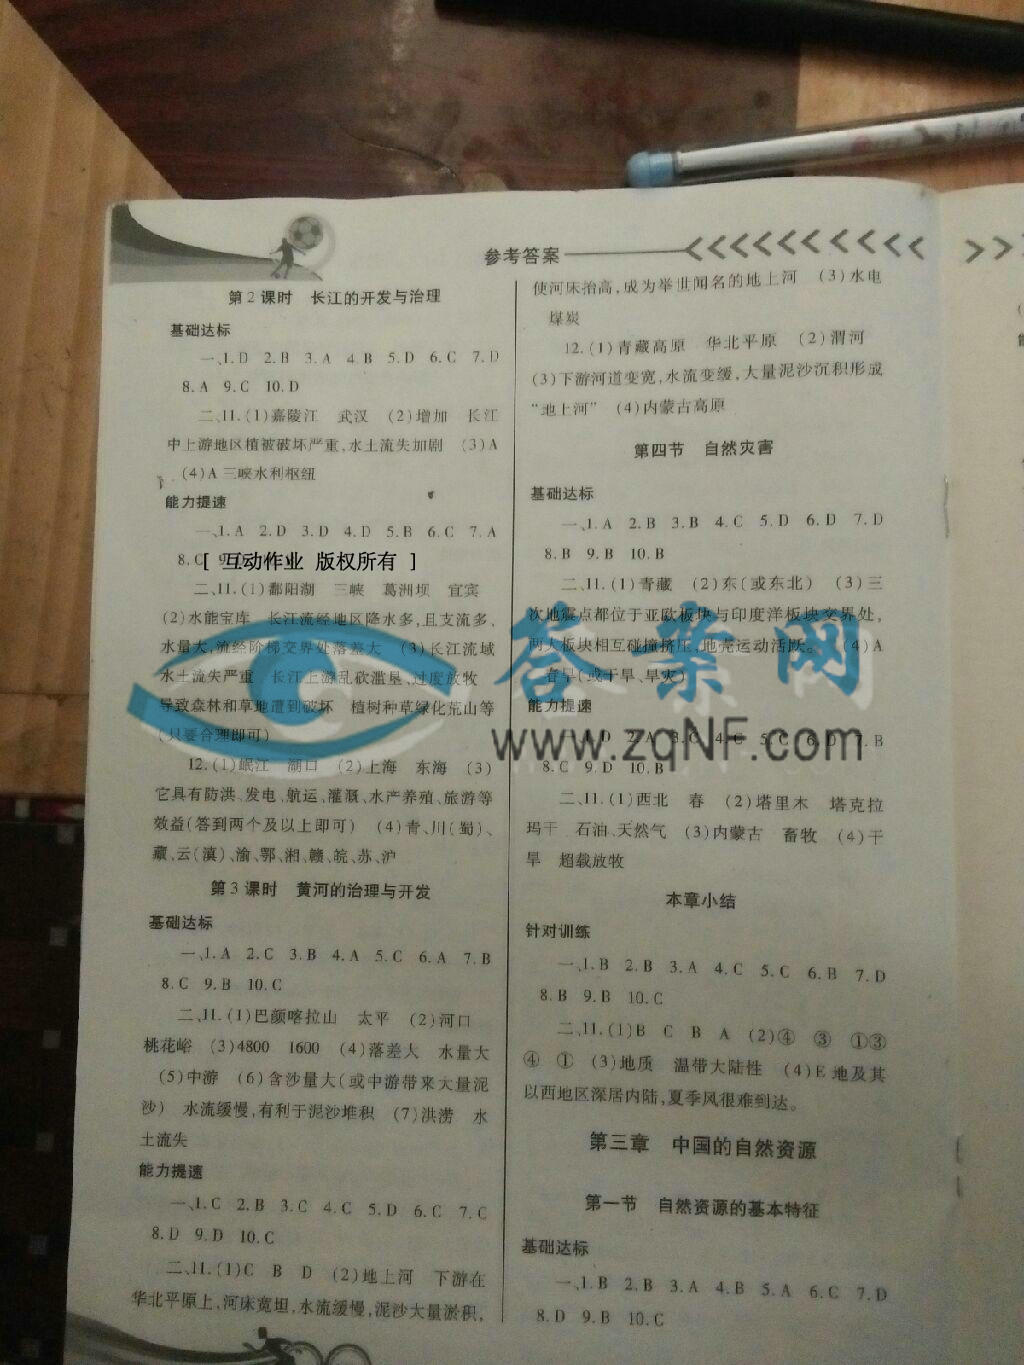 参考答案
第2课时 长江的开发与治理
基础达标
一、1.D 2.B 3.A 4.B 5.D 6.C 7.D
8.A 9.C 10.D
二、11.(1)嘉陵江 武汉 (2)增加 长江
中上游地区植被破坏严重,水土流失加剧 (3)A
(4)A 三峡水利枢纽
能力提速
一、1.A 2.D 3.D 4.D 5.B 6.C 7.A
8.C
[ 互动作业 版权所有 ]
二、11.(1)鄱阳湖 三峡 葛洲坝 宜宾
(2)水能宝库 长江流经地区降水多,且支流多,
水量大,流经阶梯交界处落差大 (3)长江流域
水土流失严重 长江上游乱砍滥垦、过度放牧
导致森林和草地遭到破坏 植树种草绿化荒山等
(只要合理即可)
12.(1)岷江 湖口 (2)上海 东海 (3)
它具有防洪、发电、航运、灌溉、水产养殖、旅游等
效益(答到两个及以上即可) (4)青、川(蜀)、
藏、云(滇)、渝、鄂、湘、赣、皖、苏、沪
第3课时 黄河的治理与开发
基础达标
一、1.A 2.C 3.B 4.A 5.C 6.A 7.B
8.C 9.B 10.C
二、11.(1)巴颜喀拉山 太平 (2)河口
桃花峪 (3)4800 1600 (4)落差大 水量大
(5)中游 (6)含沙量大(或中游带来大量泥
沙) 水流缓慢,有利于泥沙堆积 (7)洪涝 水
土流失
能力提速
一、1.C 2.B 3.C 4.C 5.D 6.C 7.C
8.D 9.D 10.C
二、11.(1)C B D (2)地上河 下游在
华北平原上,河床宽坦,水流缓慢,泥沙大量淤积,
使河床抬高,成为举世闻名的地上河 (3)水电
煤炭
12.(1)青藏高原 华北平原 (2)渭河
(3)下游河道变宽,水流变缓,大量泥沙沉积形成
“地上河” (4)内蒙古高原
第四节 自然灾害
基础达标
一、1.A 2.B 3.B 4.C 5.D 6.D 7.D
8.B 9.B 10.B
二、11.(1)青藏 (2)东(或东北) (3)三
次地震点都位于亚欧板块与印度洋板块交界处,
两大板块相互碰撞挤压,地壳运动活跃。 (4)A
春旱(或干旱、旱灾)
能力提速
一、1.D 2.A 3.C 4.C 5.C 6.D 7.B
8.C 9.D 10.B
二、11.(1)西北 春 (2)塔里木 塔克拉
玛干 石油、天然气 (3)内蒙古 畜牧 (4)干
旱 超载放牧
本章小结
针对训练
一、1.B 2.B 3.A 4.C 5.C 6.B 7.D
8.B 9.B 10.C
二、11.(1)B C B A (2)④ ③ ①③
④ ① (3)地质 温带大陆性 (4)E地及其
以西地区深居内陆,夏季风很难到达。
第三章 中国的自然资源
第一节 自然资源的基本特征
基础达标
一、1.B 2.B 3.A 4.B 5.A 6.D 7.D
8.D 9.B 10.C
答案网
www.zqNF.com